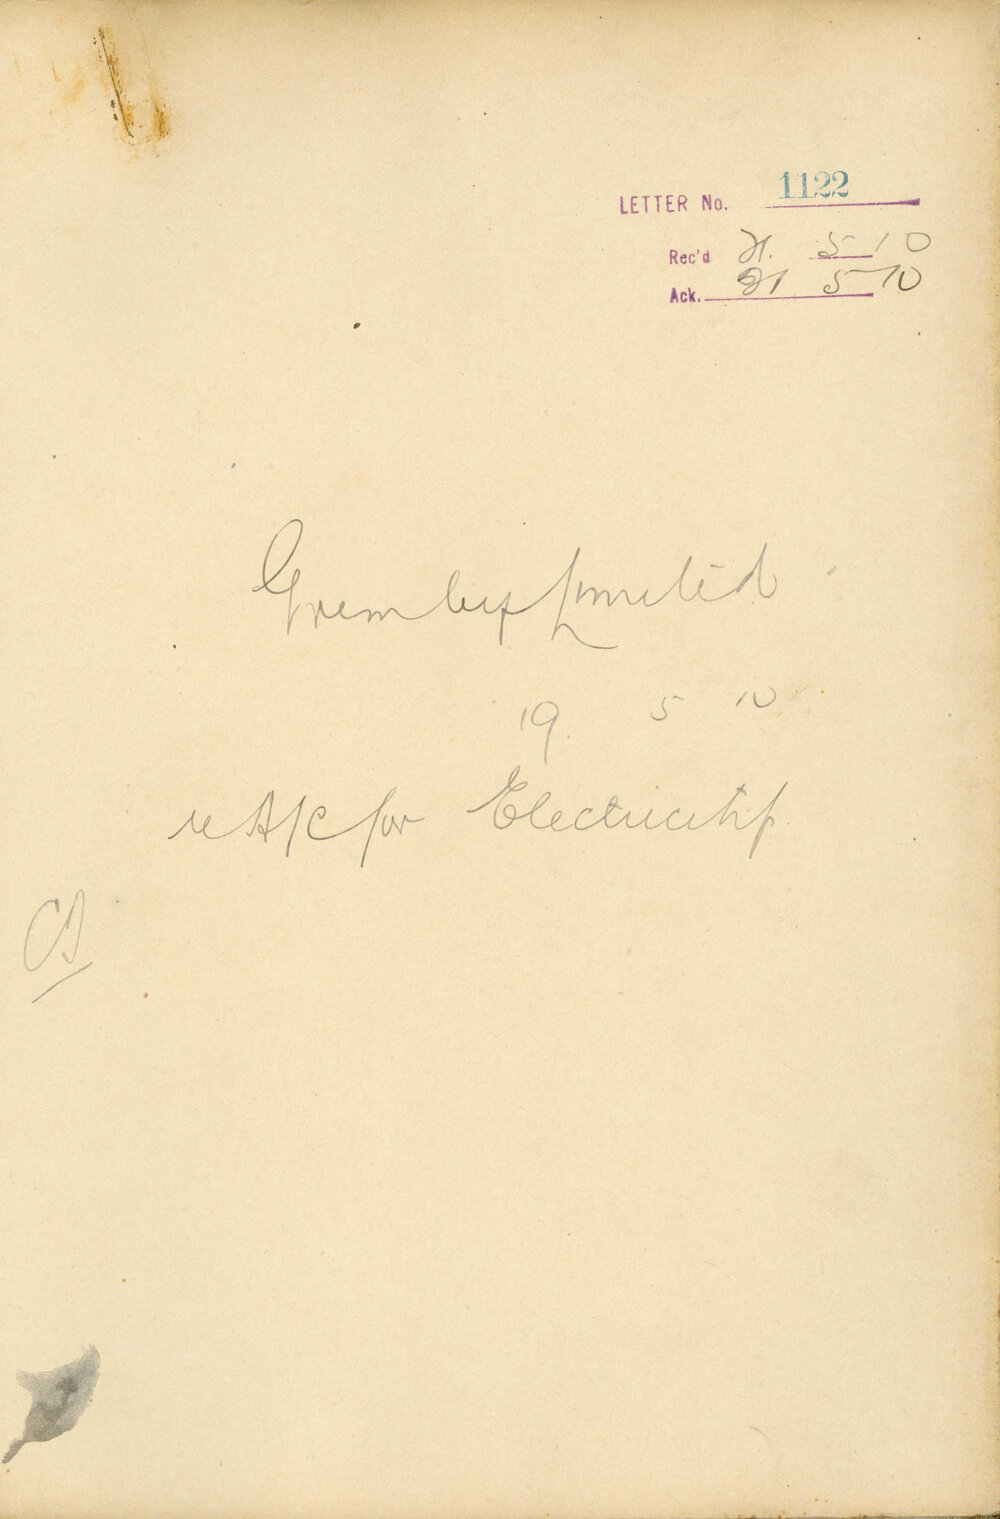 LETTER No. 1122
Rec'd 21. 5 10
Ack. 21 5 10
Limited
19. 5 10
re A/c for Electricity